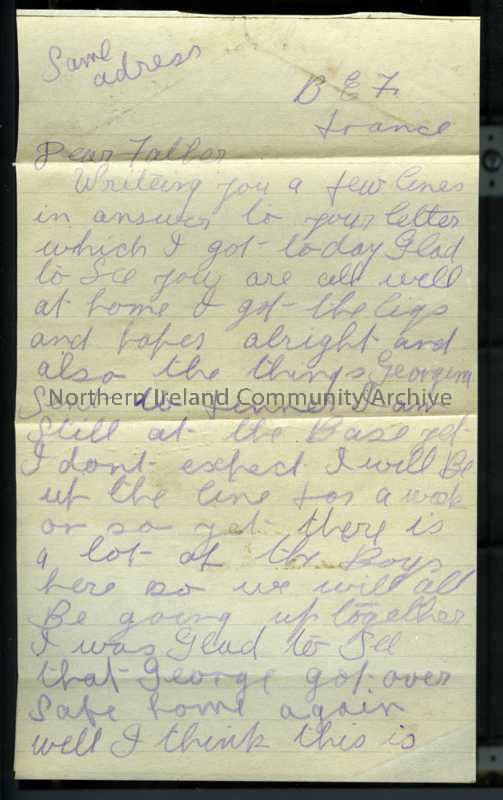 Same
adress
B E F
France
Dear Father
Writeing you a few lines
in answer to your letter
which I got today Glad
to See you are all well
at home I got the cigs
and papes alright and
also the things Georgina
Sent to Jennie I am
Northern Ireland Community Archive
Still at the Base yet
I dont expect I will Be
up the line for a week
or so yet there is
a lot of the Boys
here so we will all
Be going up together
I was Glad to See
that George got over
Safe home again
well I think this is